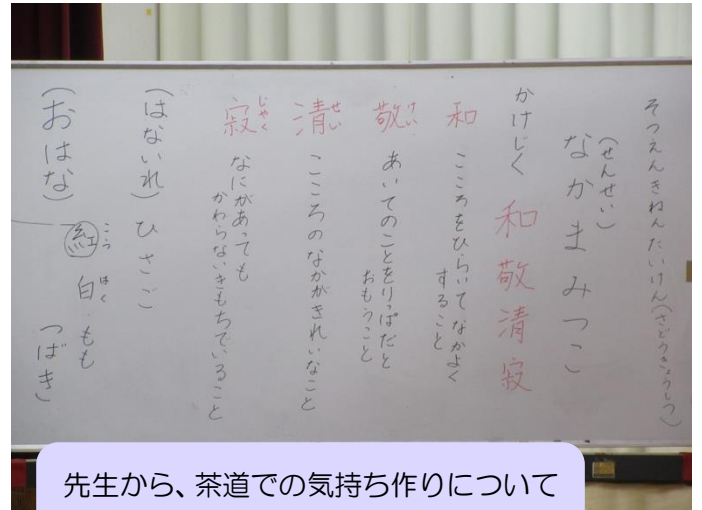 そつえんきねんたいけん(さどうきょうしつ)
(せんせい)
なかまみつこ
かけじく 和敬清寂
和 こころをひらいてなかよく
すること
敬 けい あいてのことをりっぱだと
おもうこと
清 せい こころのなかがきれいなこと
寂 じゃく なにがあっても
かわらないきもちでいること
(はないれ) ひさご
(おはな) 紅 こう 白 はく ・もも
つばき
先生から、茶道での気持ち作りについて